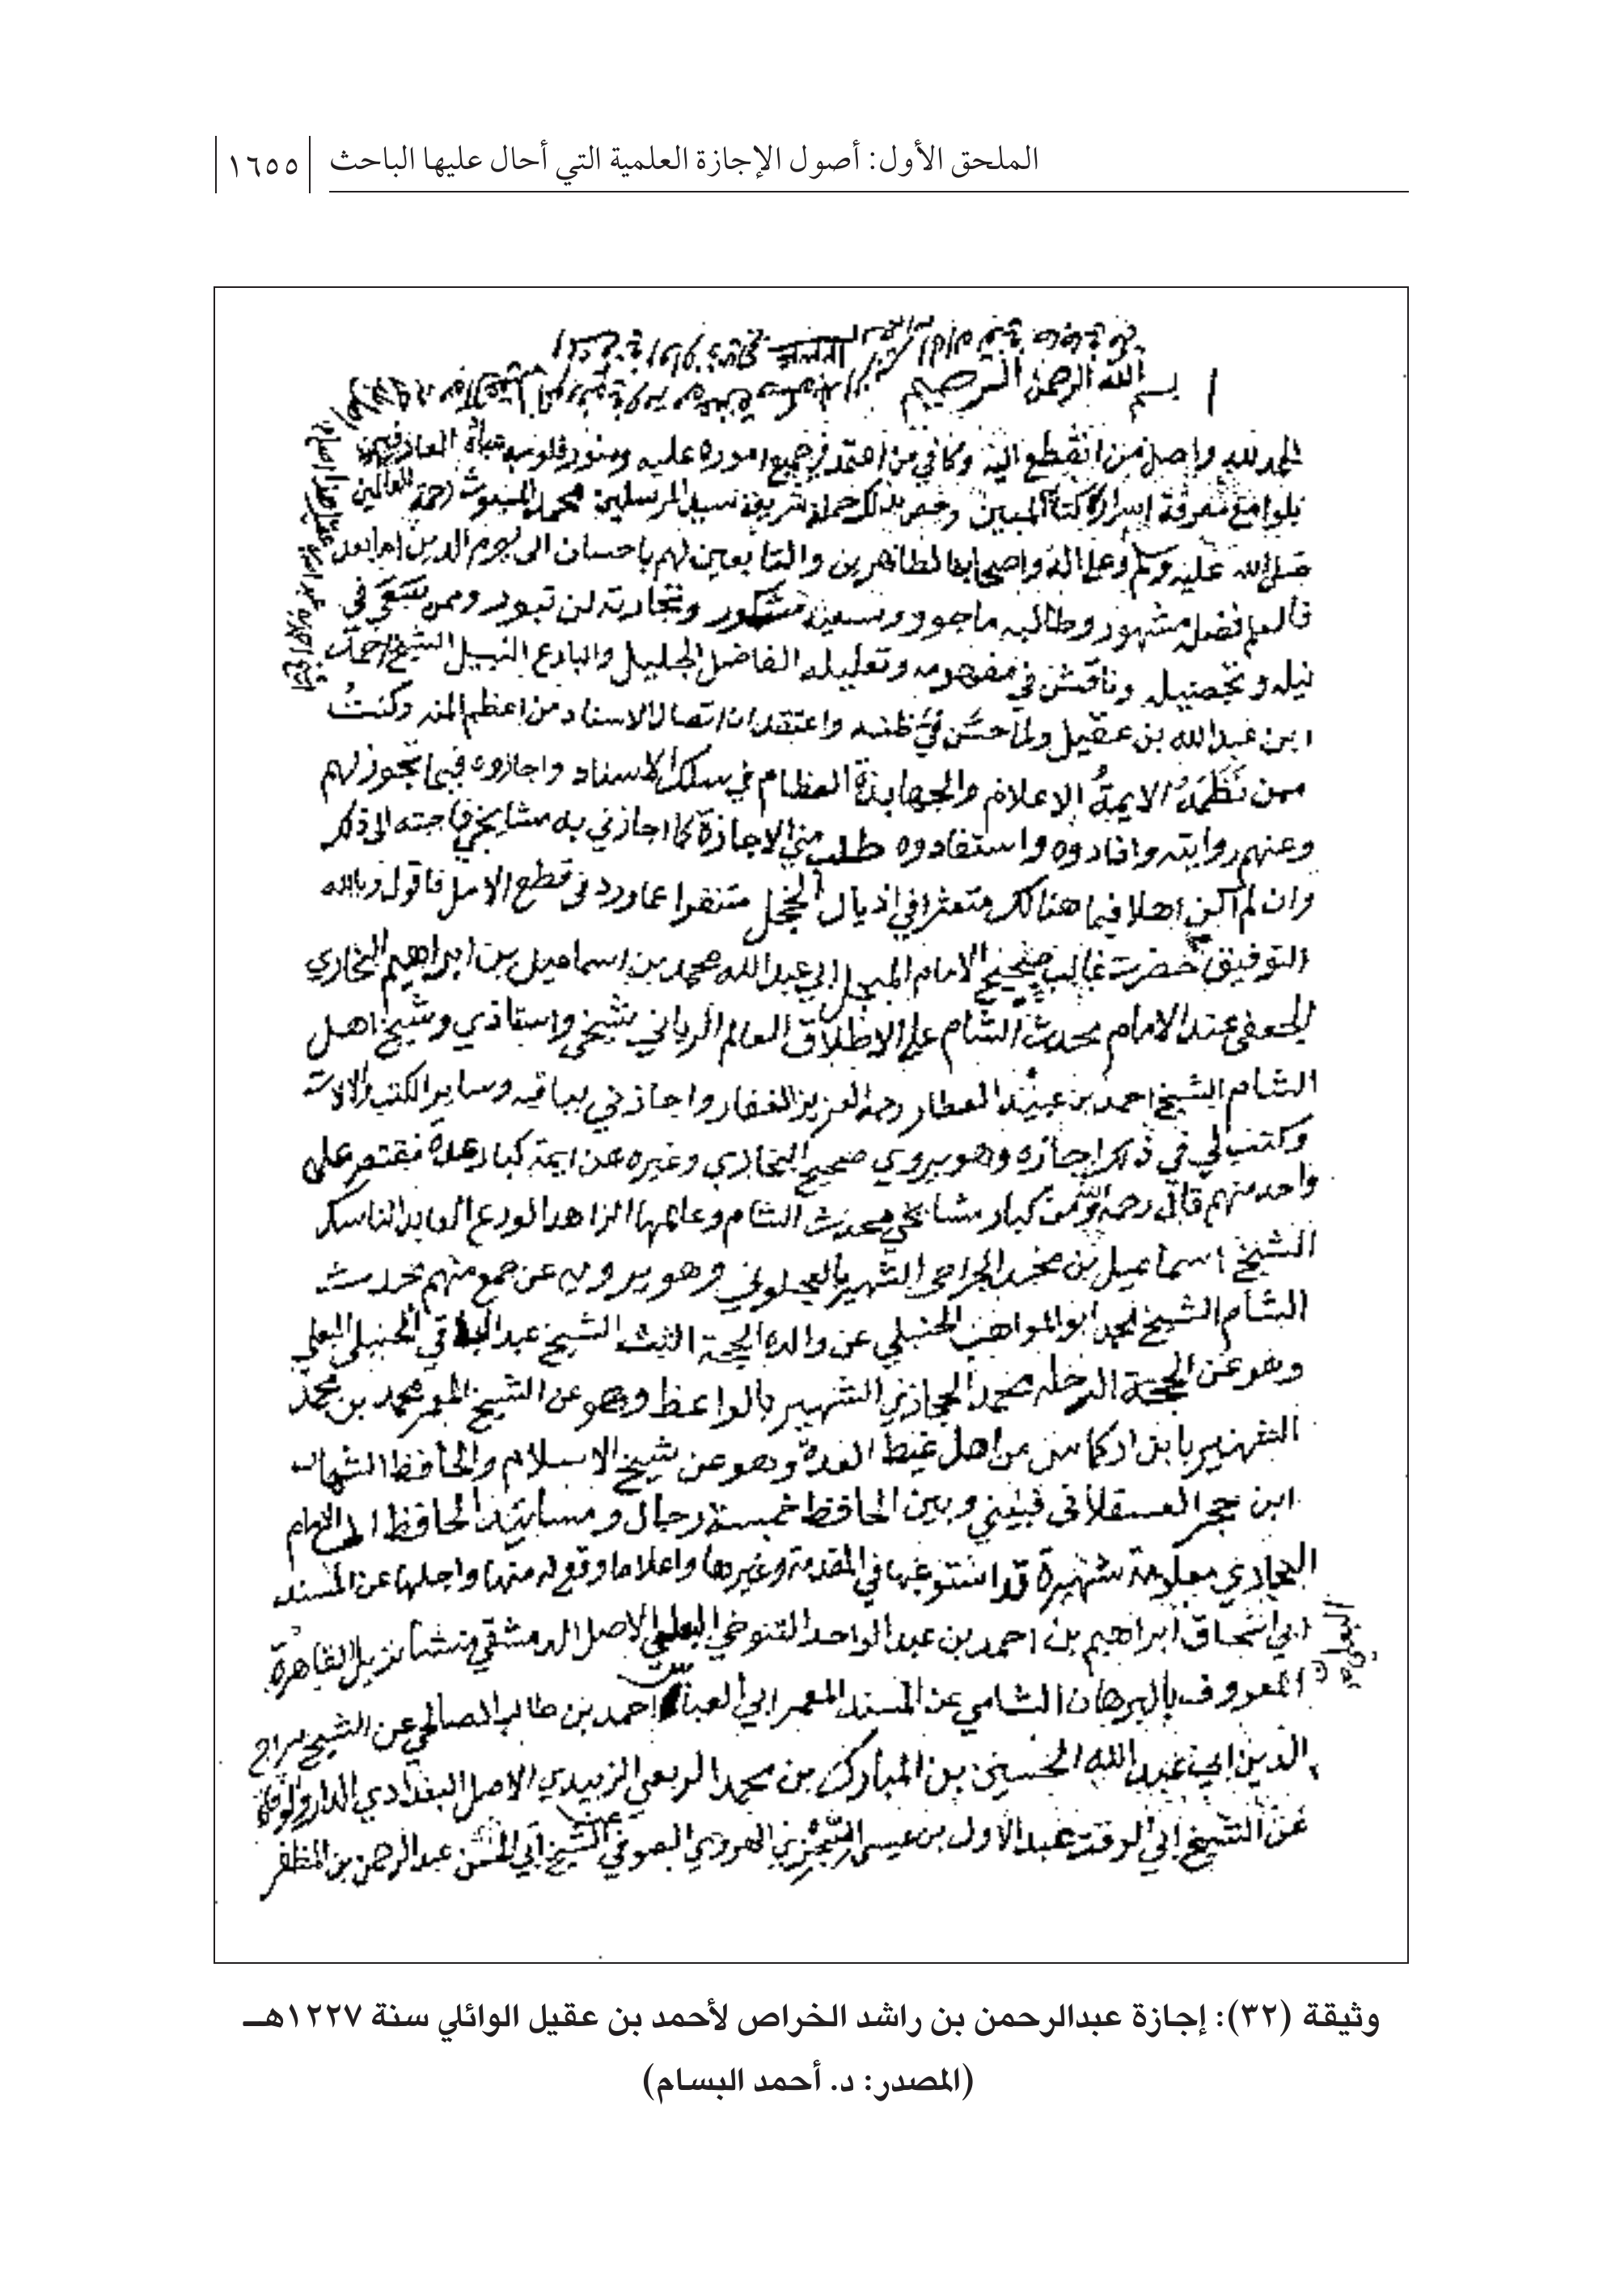 الملحق الأول: أصول الإجازة العلمية التي أحال عليها الباحث
١٦٥٥
بسم الله الرحمن الرحيم
الحمد لله واصل من انقطع اليه وكافي من اعتمد في جميع اموره عليه ومنور قلوب العارفين
بلوامع معرفة اسرار كتابه المبين وخص بذلك حملة شريعة سيد المرسلين محمد المبعوث رحمة للعالمين
صلى الله عليه وسلم وعلى اله واصحابه الطاهرين والتابعين لهم باحسان الى يوم الدين اما بعد
فالعلم فضله مشهور وطالبه ماجور وسعيه مشكور وتجارته لن تبور وممن سعى في
نيله وتحصيله وناقش في مفهومه وتعليله الفاضل الجليل والبارع النبيل الشيخ احمد
ابن عبد الله بن عقيل ولما حسن في ظنه واعتقد ان اتصال الاسناد من اعظم المنه وكنت
ممن نظمه الايمة الاعلام والجهابذة العظام في سلك الاسناد واجازوه فيما تجوز لهم
وعنهم روايته وافادوه واستفادوه طلب مني الاجازة كما اجازني به مشايخي فاجبته الى ذلك
وان لم اكن اهلا فيما هنالك متعثرا في اذيال الخجل عما ورد في قطع الامل فاقول وبالله
التوفيق حضرت غالب صحيح الامام المبجل ابي عبد الله محمد بن اسماعيل بن ابراهيم البخاري
الجعفي عند الامام محدث الشام على الاطلاق العالم الرباني شيخي واستاذي وشيخ اهل
الشام الشيخ احمد بن عبيد العطار رحمه العزيز الغفار واجازني بباقيه وساير الكتب
وكتب لي في ذلك اجازه وهو يروي صحيح البخاري وغيره عن ايمة كبار عدة فيقتصر على
واحد منهم قال رحمه الله ومن كبار مشايخي محدث الشام وعالمها الزاهد الورع العابد الناسك
الشيخ اسماعيل بن محمد الجراحي الشهير بالعجلوني وهو يرويه عن جمع منهم محدث
الشام الشيخ محمد ابو المواهب الحنبلي عن والده الحجة الثبت الشيخ عبد الباقي الحنبلي البعلي
وهو عن الحجة الرحله محمد الحجازي الشهير بالواعظ وهو عن الشيخ المعمر محمد بن محمد
الشهير بابن اركماس من اهل غيط العدة وهو عن شيخ الاسلام والحافظ الشهاب
ابن حجر العسقلاني فبيني وبين الحافظ خمسة رجال ومسانيد الحافظ الى الامام
البخاري معلومة شهيرة قد استوعبها في المقدمة وغيرها واعلاما وقع له منها واجلها عن المسند
ابي اسحاق ابراهيم بن احمد بن عبد الواحد التنوخي البعلي الاصل الدمشقي منشأ نزيل القاهرة
المعروف بالبرهان الشامي عن المسند المعمر ابي العباس احمد بن طالب الصالحي عن الشيخ سراج
الدين ابي عبد الله الحسين بن المبارك بن محمد الربعي الزبيدي الاصل البغدادي الدار والوفاة
عن الشيخ ابي الوقت عبد الاول بن عيسى السجزي الهروي الصوفي عن الشيخ ابي الحسن عبد الرحمن بن المظفر
وثيقة (٣٢): إجازة عبدالرحمن بن راشد الخراص لأحمد بن عقيل الوائلي سنة ١٢٢٧هـ
(المصدر: د. أحمد البسام)